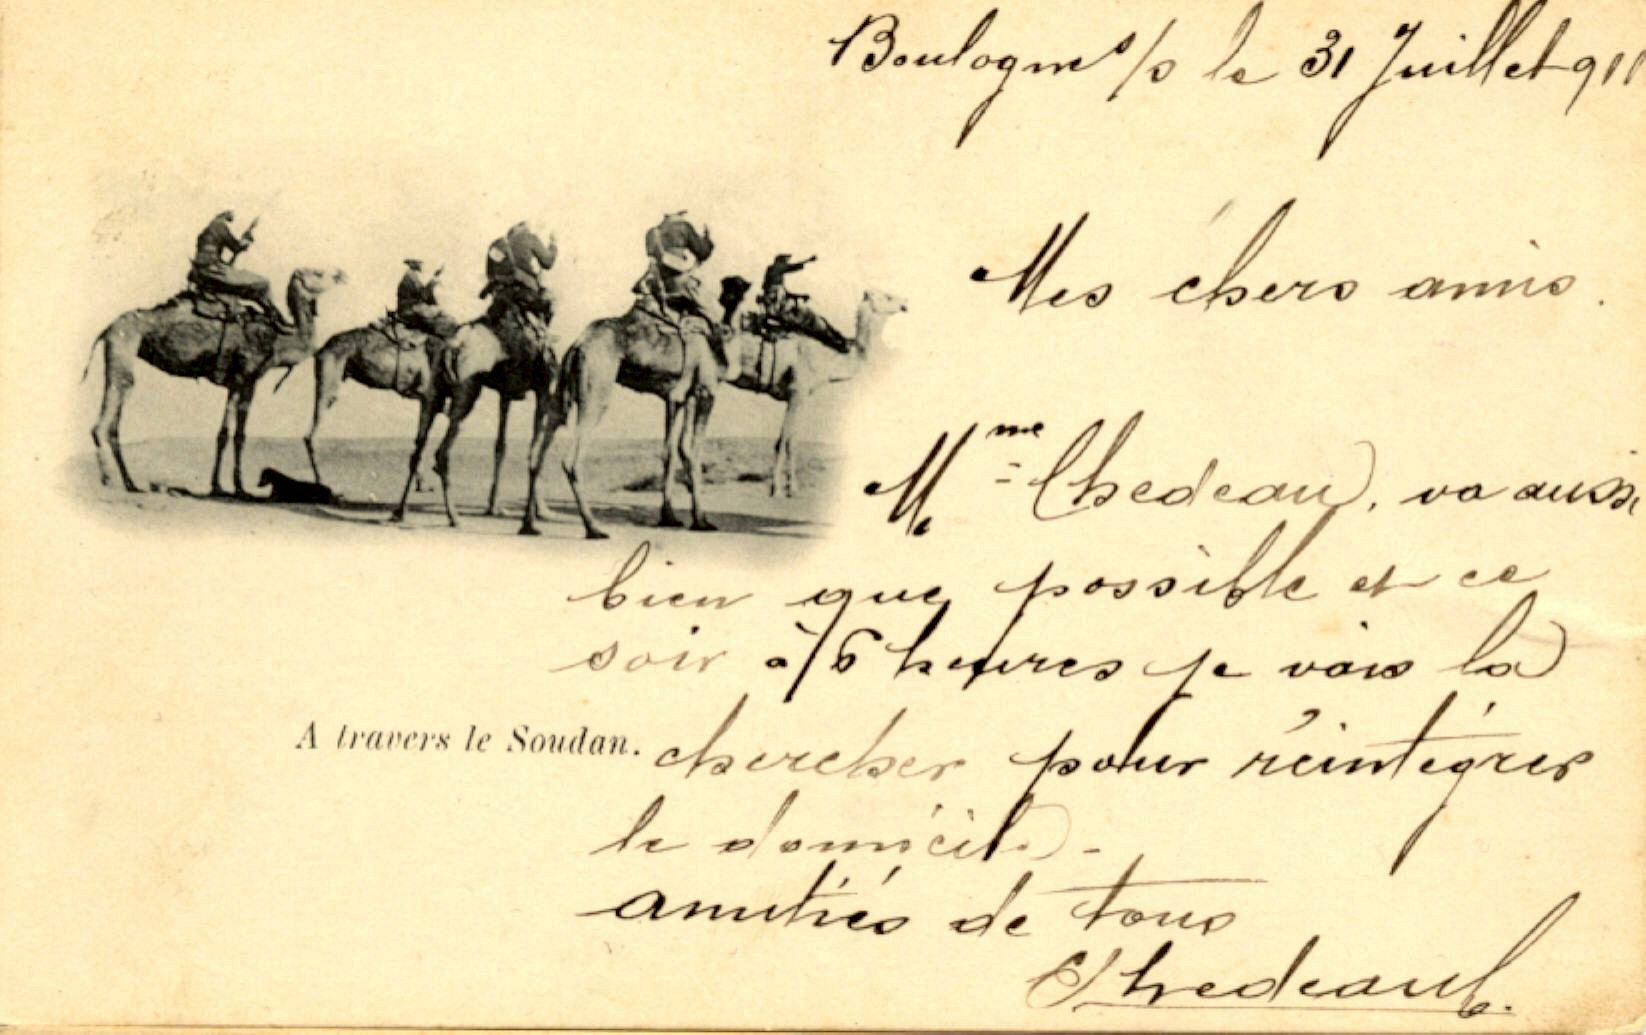 Boulogne s/s le 31 Juillet 911
Mes chers amis.
Mme Chedeau, va aussi
bien que possible et ce
soir à 6 heures je vais la
chercher pour réintégrer
le domicile -
A travers le Soudan.
amitiés de tous
Chedeau